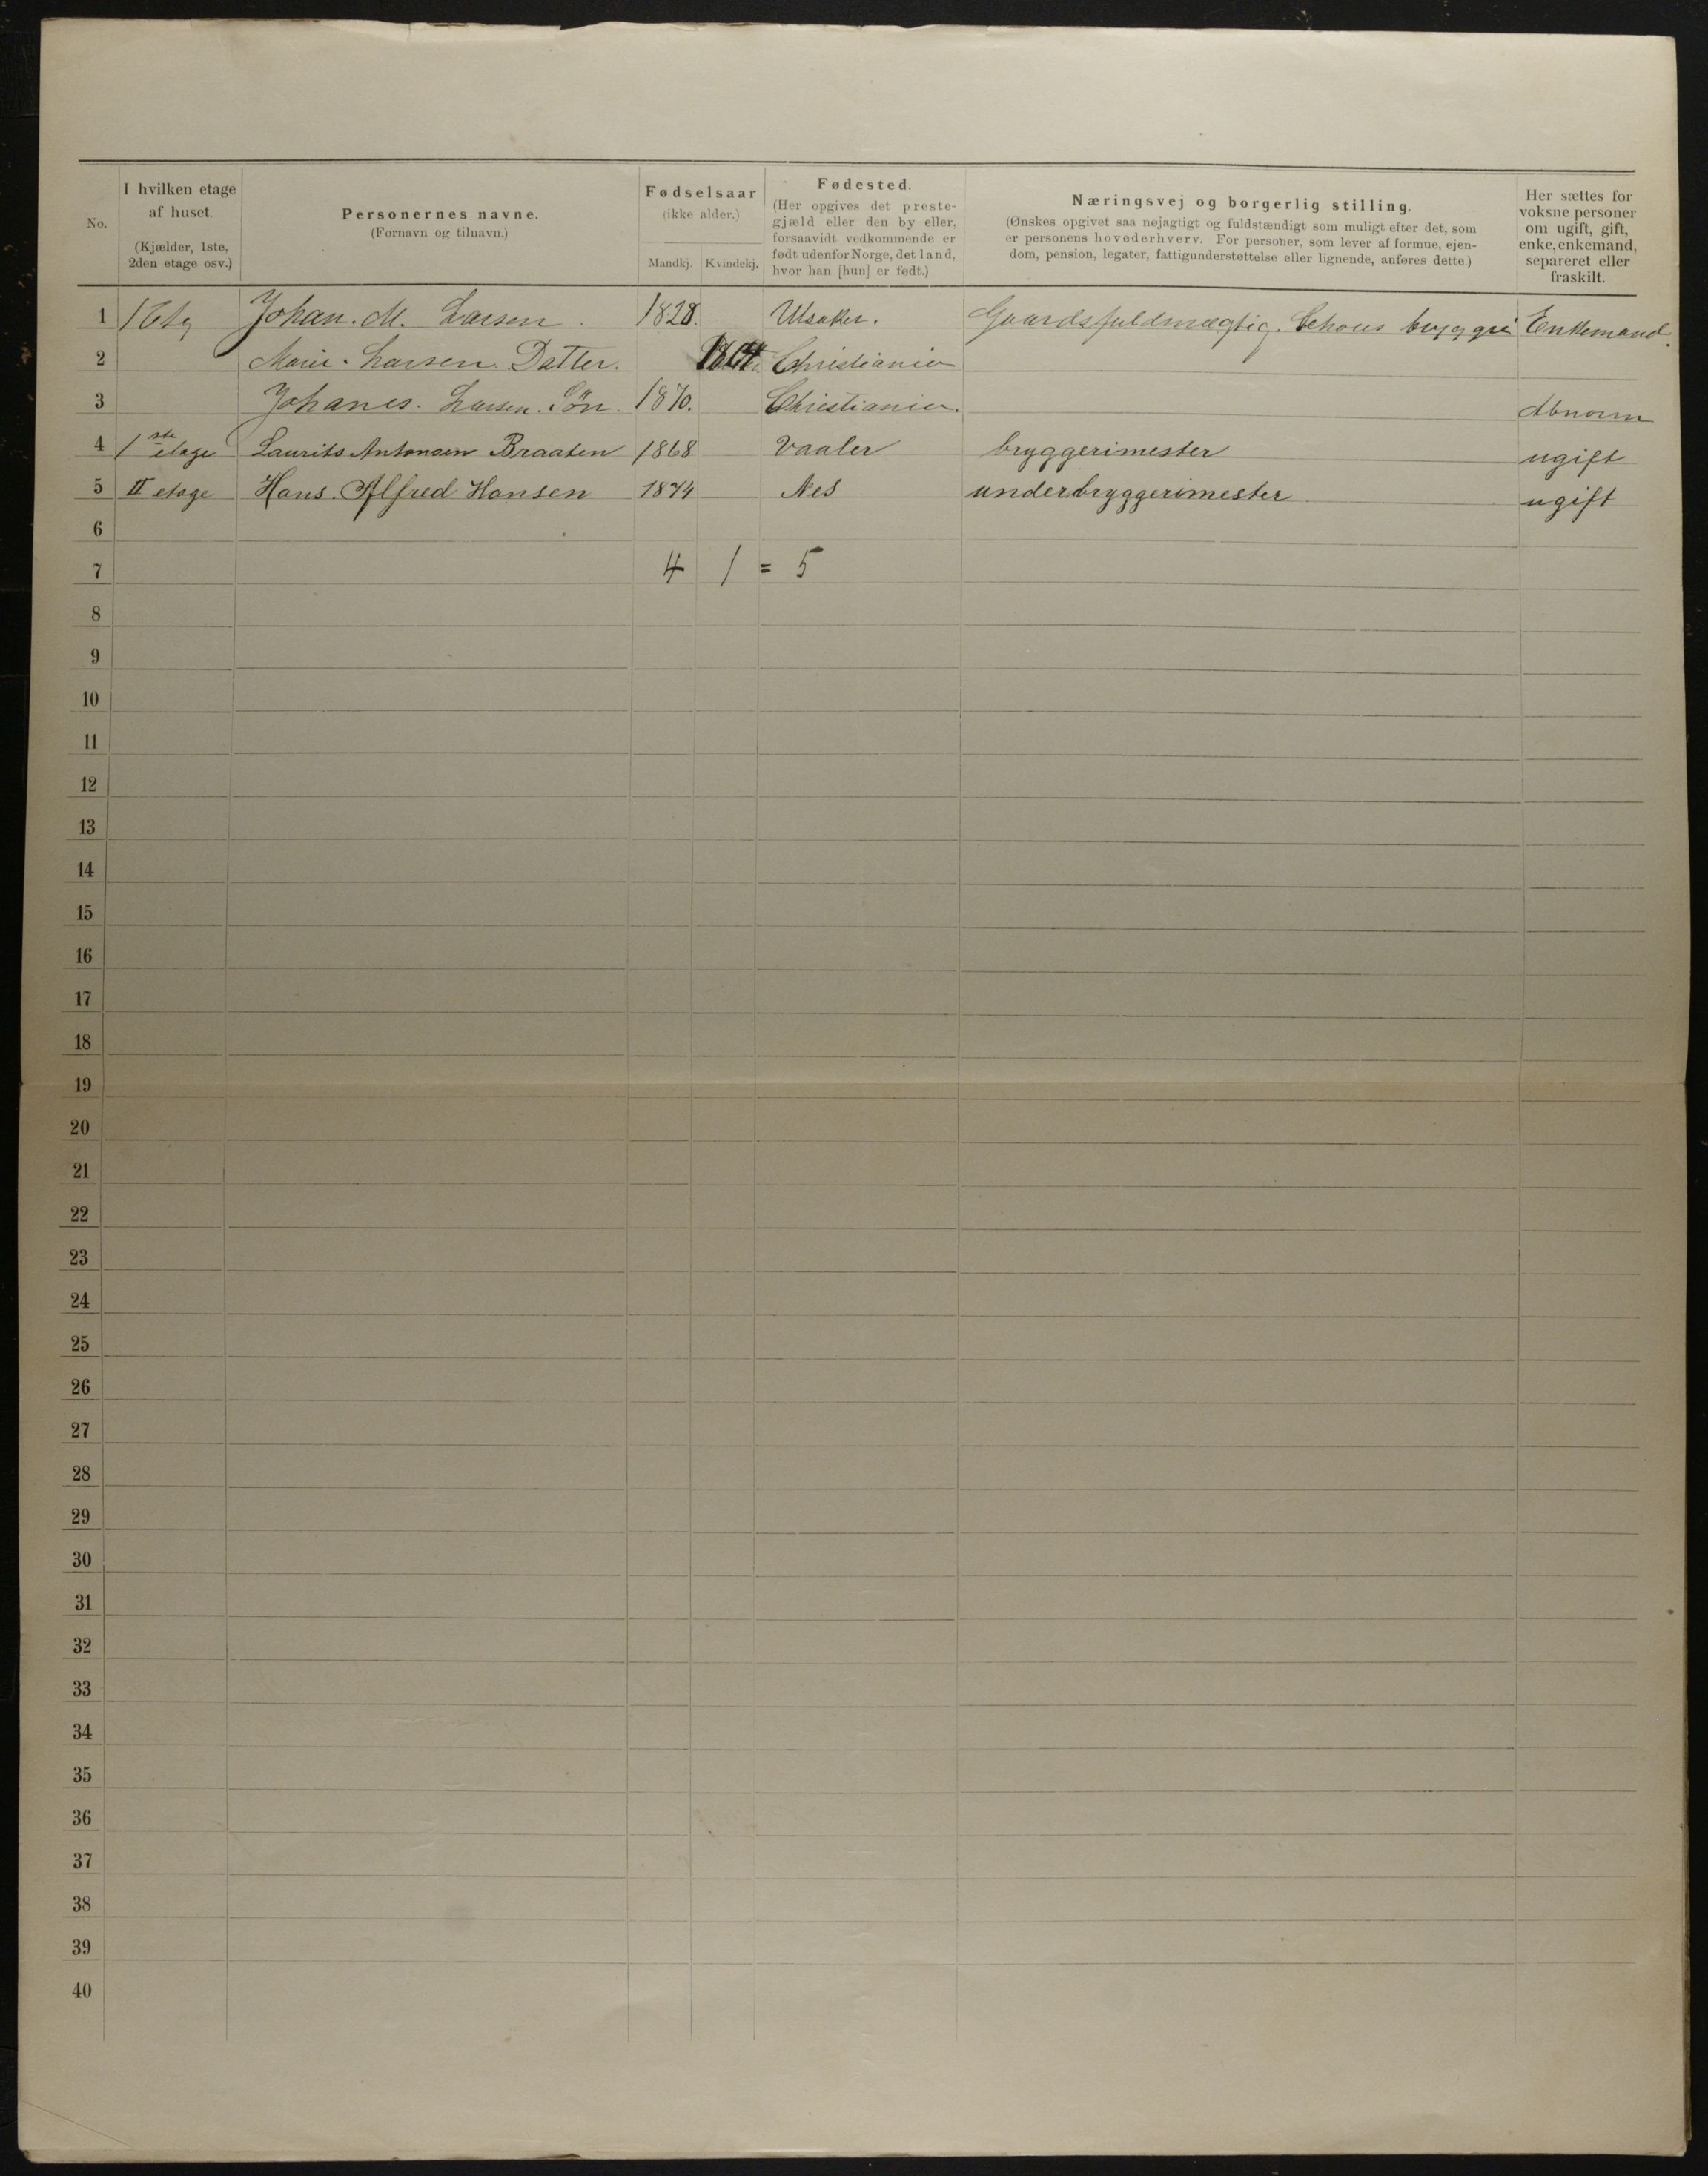 No.
I hvilken etage
af huset.
(Kjælder, 1ste,
2den etage osv.)
Personernes navne.
(Fornavn og tilnavn.)
Fødselsaar
(ikke alder.)
Mandkj. Kvindekj.
Fødested.
(Her opgives det preste-
gjæld eller den by eller,
forsaavidt vedkommende er
født udenfor Norge, det land,
hvor han [hun] er født.)
Næringsvej og borgerlig stilling.
(Ønskes opgivet saa nøjagtigt og fuldstændigt som muligt efter det, som
er personens hovederhverv. For personer, som lever af formue, ejen-
dom, pension, legater, fattigunderstøttelse eller lignende, anføres dette.)
Her sættes for
voksne personer
om ugift, gift,
enke, enkemand,
separeret eller
fraskilt.
1 1 Etg Johan. M. Larsen. 1828. Ulsaker. Gaardsfuldmægtig. Enkemand.
2 Marie. Larsen. Datter. 1864 Christiania
3 Johanes. Larsen. Søn. 1870. Christiania. Abnorm
4 1ste etage Laurits Antonsen Braaten 1868 Vaaler bryggerimester ugift
5 II etage Hans. Alfred Hansen 1874 Nes underbryggerimester ugift
6
7 4 1 = 5
8
9
10
11
12
13
14
15
16
17
18
19
20
21
22
23
24
25
26
27
28
29
30
31
32
33
34
35
36
37
38
39
40